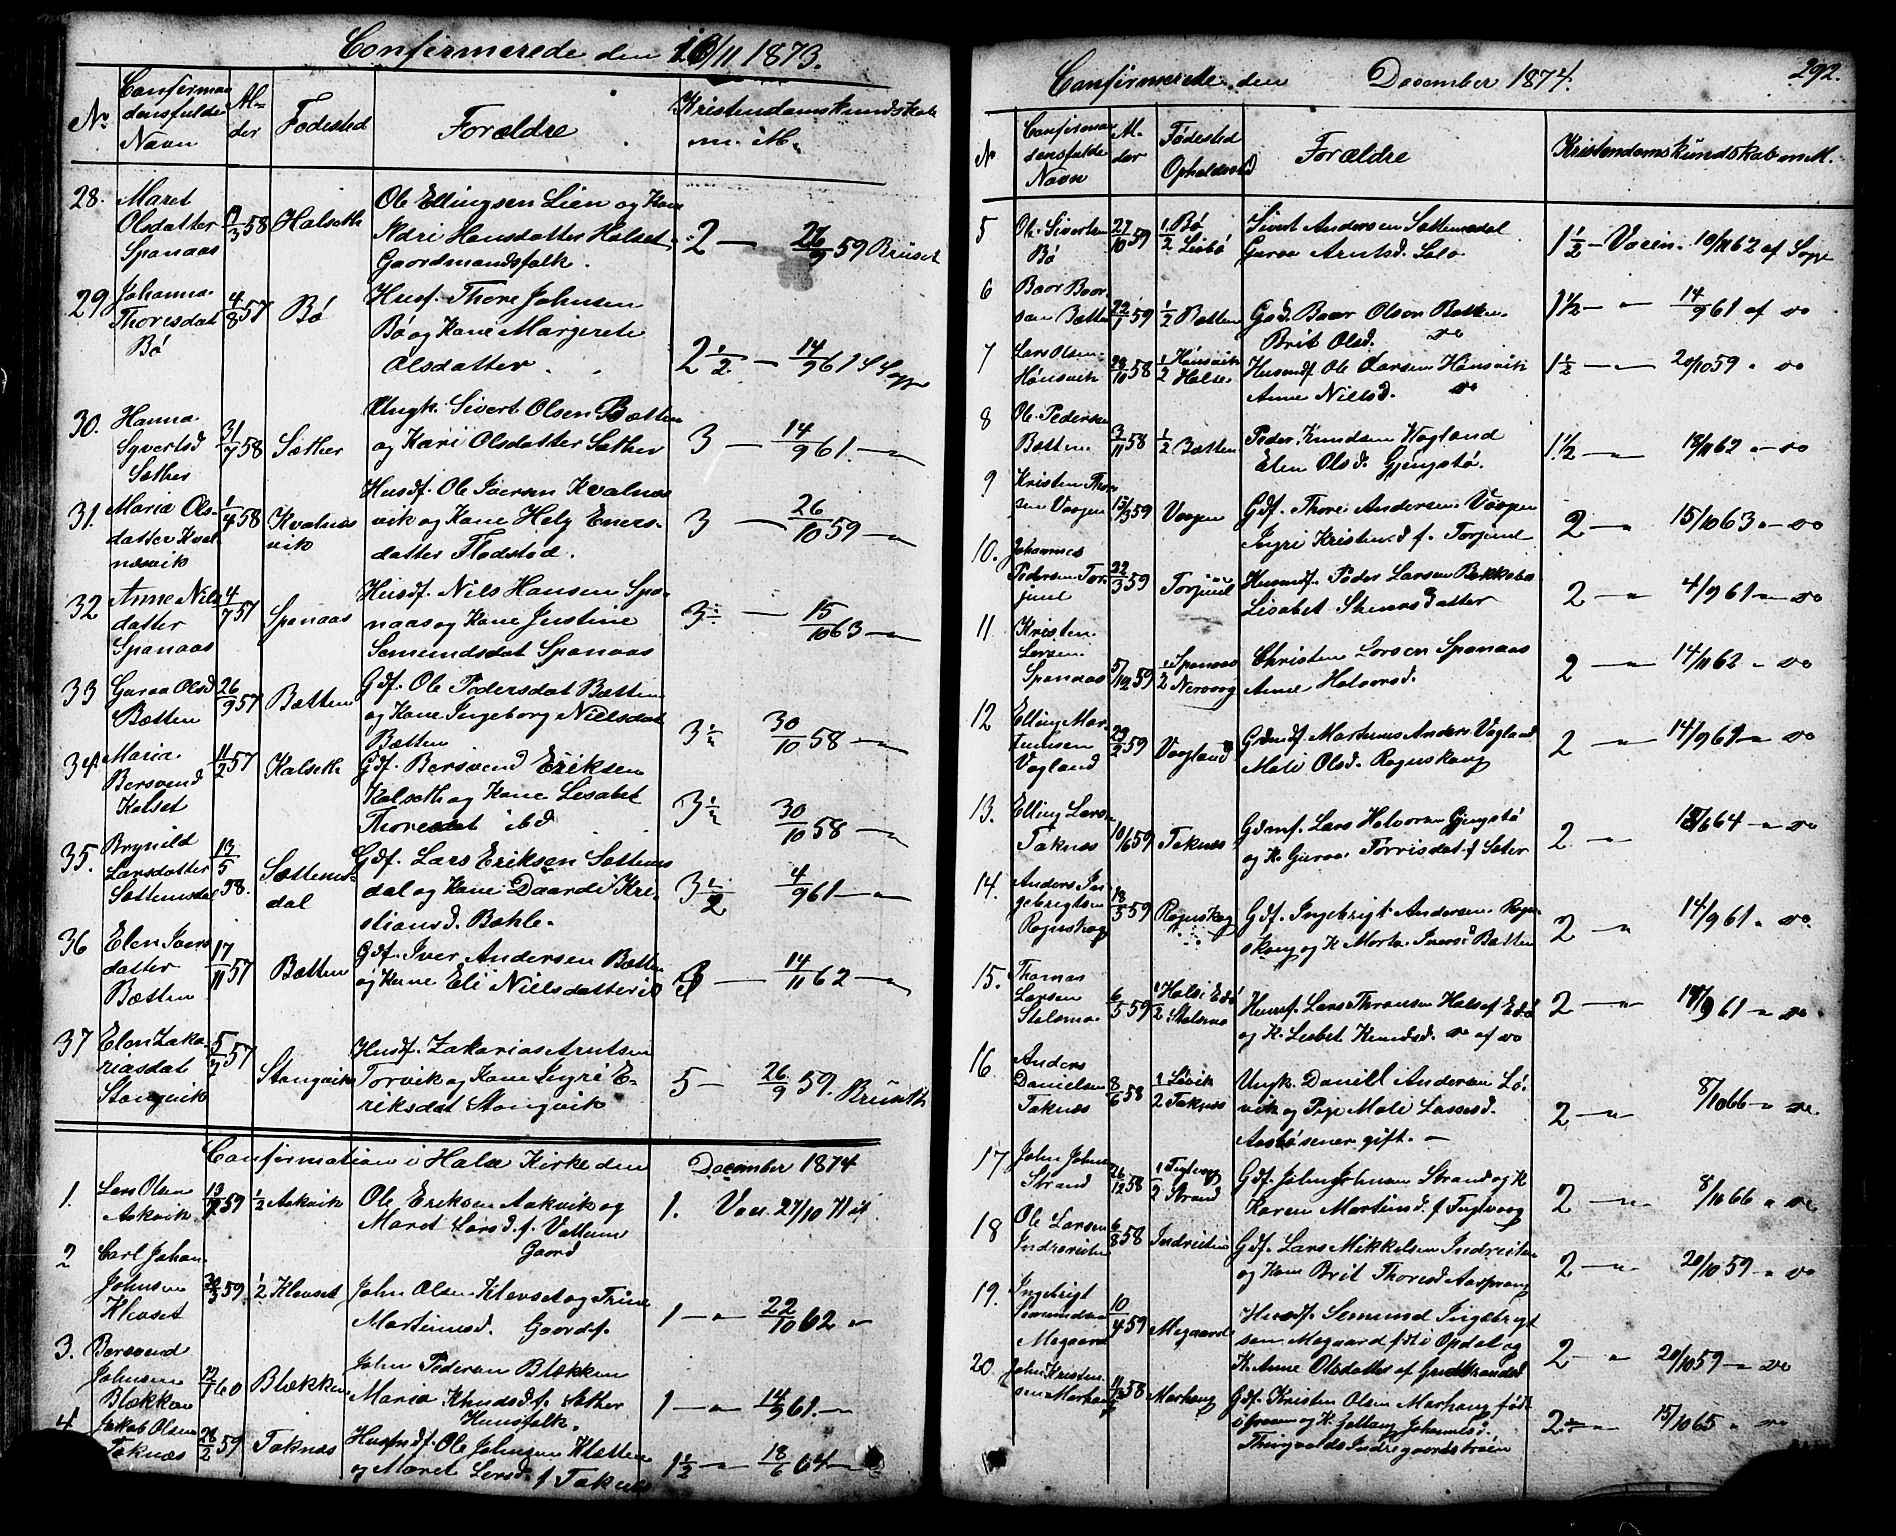 Confirmerede den 16/11 1873.
No Confirman densfulde Navn Al- der Fødested Forældre Kristendomskundskab m. M.
28. Maret Olsdatter Spanaas 58 Halseth Ole Ellingsen Lien og Kone
Hansdatter Halset
Gaardmandsfolk. 2 — 59 Brüset
29 Johanna Thoresdat Bø 4/8 57 Bø Husf. Thore Johnsen
Bø og Kone Margrete
Olsdatter. 2 1/2 — 14/9 61
30. Hanna Syvertsd Sæther 31/7 58 Sæther Ungk. Sivert Olsen Bætten
og Kari Olsdatter Sæther 3 — 14/9 61. —"—
31. Maria Ols- datter Kval- nesvik 1/4 58 Kvalnes vik Husdf. Ole Iversen Kvalnes
vik og Kone Einers-
datter 3 — 26/10 59 —"—
32 Anne Nils datter Spanaas 4/7 57 Spanaas Husdf. Nils Hansen Spa-
naas og Kone Justine
Semundsdat Spanaas 3 — 15/10 63 —"—
33 Guroa Olsd Bætten 26/9 57 Bætten Gdf. Ole Pedersdat Bætten
og Kone Ingeborg Nielsdat
Bætten 3 1/2 30/10 58 —"—
34 Maria Bersvend Kalset 11/2 57 Kalseth Gdf. Bersvend Eriksen
Kalseth og Kone Lisabet
Thoresdat ibd 3 1/2 30/10 58 —"—
35. Brynild Larsdatter Sættemsdal 13/5 58. Sættems- dal Gdf. Lars Eriksen Sættems
dal og Kone Kri-
stiansd. Bøhle. 3 1/2 4/9 61 —"—
36 Elen Ivers datter Bætten 17/11 57 Bætten Gdf. Iver Andersen Bætten
og Kone Eli Nielsdatter 3 — 14/11 62 —"—
37 Elen Zaka- riasdat Stangvik 5/7 57 Stangvik Husdf. Zakarias Arntsen
Torvik og Kone Ingri E-
riksdat Stangvik 5 — 26/9 59. Brüseth
Confirmation i Halse Kirke den December 1874
1. Lars Olsen Aakvik 59 1/2 Aakvik Ole Eriksen Aakvik og
Maret Larsd. f.
Gaard 1. Vac. 27/10 71
2 Carl Johan Johnsen Klevset 59 1/2 Klevset John Olsen Klevset og Trine
Martinusd. Gaardf. 1 —"— 22/10 62 "
3. Bersvend Johnsen Blekken 60 Blekken John Pedersen Blekken
Maria Knudsd. f. Sæther
Huusfolk. 1 —"— 14/9 61. —
4 Jakob Olsen Taknes 28/2 59 Taknes Husmdf. Ole Johnsen
og Maret Larsd. f. Taknes 1 1/2 —"— 18/6 64 —"
292.
Confirmerede den December 1874.
No Confirman densfulde Navn Al- der Fødested Opholdsted Forældre Kristendomskundskab m M.
5 Ole Sivertsen Bø 27/10 59 1/2 Bø Lisbø Sivert Andersen Sættemsdal
Guroa Arntsd. 1 1/2 — Vaccin. 10/11 62 af
6 Baar Baar sen Bætten 22/1 59 1/2 Bætten Gdf. Baar Olsen Bætten
Brit Olsd. do 1 1/2 — " — 14/9 61 af do
7 Lars Olsen Hønsvik 58 1/2 Hønsvik Halse Husmdf. Ole Larsen Hønsvik
Anne Nielsd. do 1 1/2 —"— 20/10 59 " do
8 Ole Pedersen Bætten 3/11 58 1/2 Bætten Peder Knudsen Vagland
Elen Olsd. Gjengstø. 1 1/2 —"— 18/11 62 " do
9 Kristen Thor sen Vaagen 15/3 59 Vaagen Gdf. Thore Andersen Vaagen
Ingri Kristensd f. Torjuul 2 —"— 15/10 63 " do
10. Johannes Pedersen Tor- juul 22/3 59 Torjuul Husmdf. Peder Larsen Bekkebø
Lisabet Stenersdatter 2 —"— 4/9 61 " do
11 Kristen Larsen Spanaas 5/12 59 1/2 Spanaas Nervaag Christen Larsen Spanaas
Anne Halvorsd. 2 —"— 14/11 62 " do
12 Elling Mar- tinusen Vagland 59 Vagland Gdmdf. Martinus Anders Vagland
Mali Olsd. Rognskaug 2 —"— 14/9 61 " do
13. Elling Lars- Taknes 10/6 59 Taknes Gdmf. Lars Halvorsen Gjengstø
og K. Guroa Torrisdat f. Sæter 2 —"— 18/6 64 " do
14. Anders In- gebrigtsen Rognskog 18/5 59 Rognskog Gdf. Ingebrigt Andersen Rogn-
skoug og K Marta Iversd Bætten 2 —"— 14/9 61 " do
15. Thomas Larsen Stølsmo 6/5 59 1/2 Halse Edø Stølsmo Huusf. Lars Thoresen Halse f Edø
og K. Lisbet Knudsd. do af do 2 —"— 14/9 61 " do
16 Anders Danielsen Taknes 8/6 58 1/2 Løvik Taknes Ungk. Daniel Andersen Lø-
vik og Pige Mali Lassesd.
senere gift. — 2 —"— 8/10 66 " do
17 John Johns Strand 26/12 58 1/2 Fuglvaag Strand Gdf. John Johnsen Strand og K
Karen Martinsd. f. Fuglvaag 2 —"— 8/10 66 " do
18 Ole Larsen Indresten 6/8 58 Indresten Gdf. Lars Mikkelsen Indresten
og Kone Brit Thoresd 2 —"— 20/10 59 " do
19. Ingebrigt Semundsen Megaard 10/4 59 Megaard Huusdf. Semund Ingebrigt
sen Megaard født i Opdal og
K. Anne Olsdatter af 2 —"— 20/10 59 " do
20 John Kristen- sen Marhaug 58 Marhaug Gdf. Kristen Olsen Marhaug født
og K. Johannesd.
2 —"— 15/10 65 " do